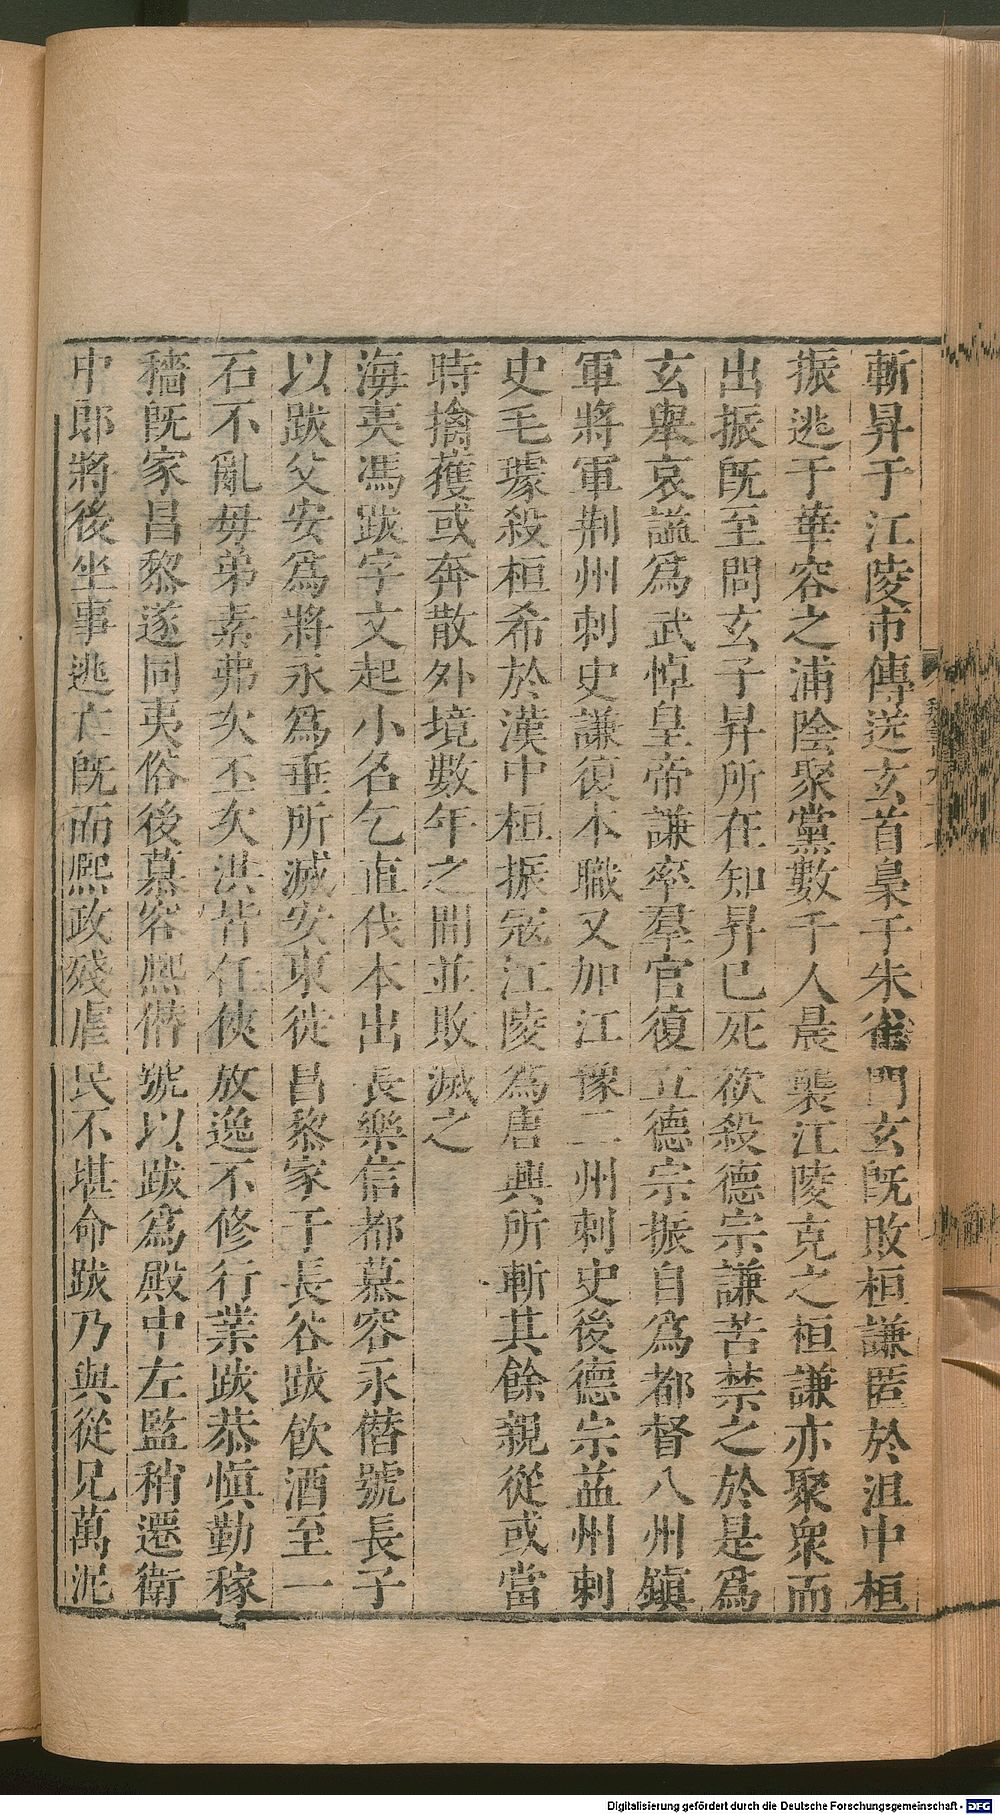 斬昇于江陵市傳送玄首梟于朱雀門玄旣敗桓謙匿於沮中桓
振逃于華容之浦陰聚黨數千人晨襲江陵克之桓謙亦聚衆而
出振旣至問玄子昇所在知昇已死欲殺德宗謙苦禁之於是爲
玄舉哀謚爲武悼皇帝謙率羣官復立德宗振自爲都督八州鎭
軍將軍荆州刺史謙復本職又加江豫二州刺史後德宗益州刺
史毛璩殺桓希於漢中桓振寇江陵爲唐興所斬其餘親從或當
時擒獲或奔散外境數年之間並敗滅之
海夷馮跋字文起小名乞直伐本出長樂信都慕容永僭號長子
以跋父安爲將永爲垂所滅安東徙昌黎家于長谷跋飮酒至一
石不亂母弟素弗次丕次洪皆任俠放逸不修行業跋恭愼勤稼
穡旣家昌黎遂同夷俗後慕容熙僭號以跋爲殿中左監稍遷衛
中郎將後坐事逃亡旣而熙政殘虐民不堪命跋乃與從兄萬泥
Digitalisierung gefördert durch die Deutsche Forschungsgemeinschaft - DFG